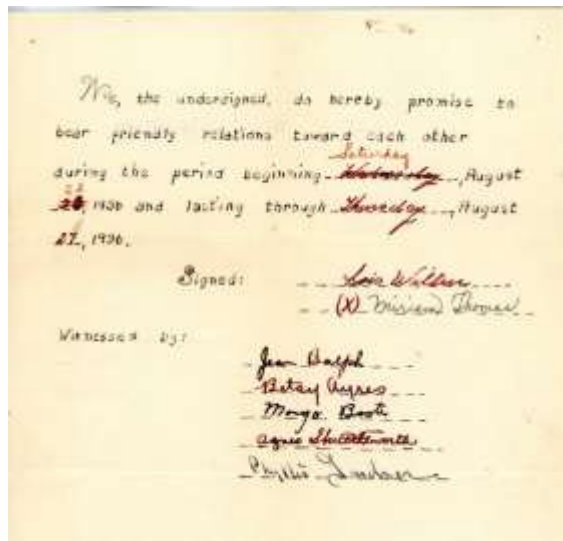 We, the undersigned, do hereby promise to
bear friendly relations toward each other
Saturday
during the period beginning Wednesday, August
22
26, 1936 and lasting through Thursday, August
27, 1936.
Signed:
Lois
(X) Miriam Thomas
Witnessed by:
Jean Dalph
Betsy Ayres
Margo
Agnes Shuttleworth
Phyllis